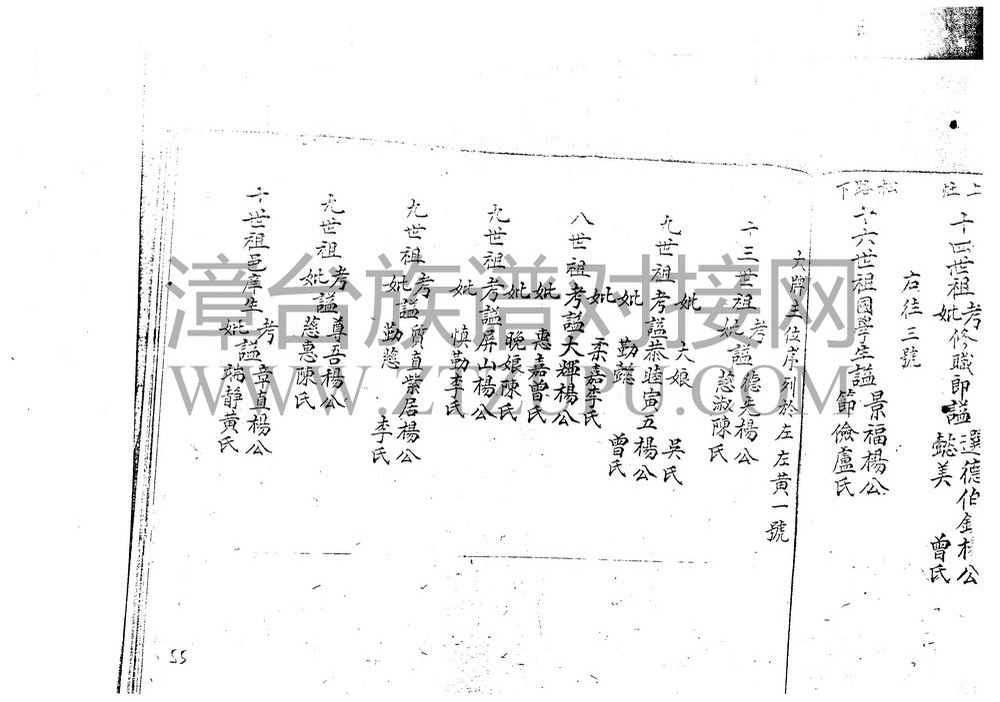 上
十四世祖
考修職郎謚選德伯 楊公
妣 懿美 曾氏
右往三號
松路下
十六世祖國學生謚
景福楊公
節儉盧氏
大牌主位序列於左左黃一號
十三世祖
考謚德 楊公
妣 慈淑陳氏
九世祖考謚恭睦寅五楊公
妣 大娘 吳氏
妣 勤懿 曾氏
八世祖考謚大 楊公
妣 柔嘉李氏
妣 惠嘉曾氏
九世祖考謚屏山楊公
妣 晚娘陳氏
妣 慎勤李氏
九世祖考謚質直紫居楊公
妣 勤慈 李氏
九世祖
考謚尊吾楊公
妣 慈惠陳氏
十世祖邑庠生
考謚章直楊公
妣 端靜黃氏
55
漳台族谱对接网
WWW.ZTZUPU.COM